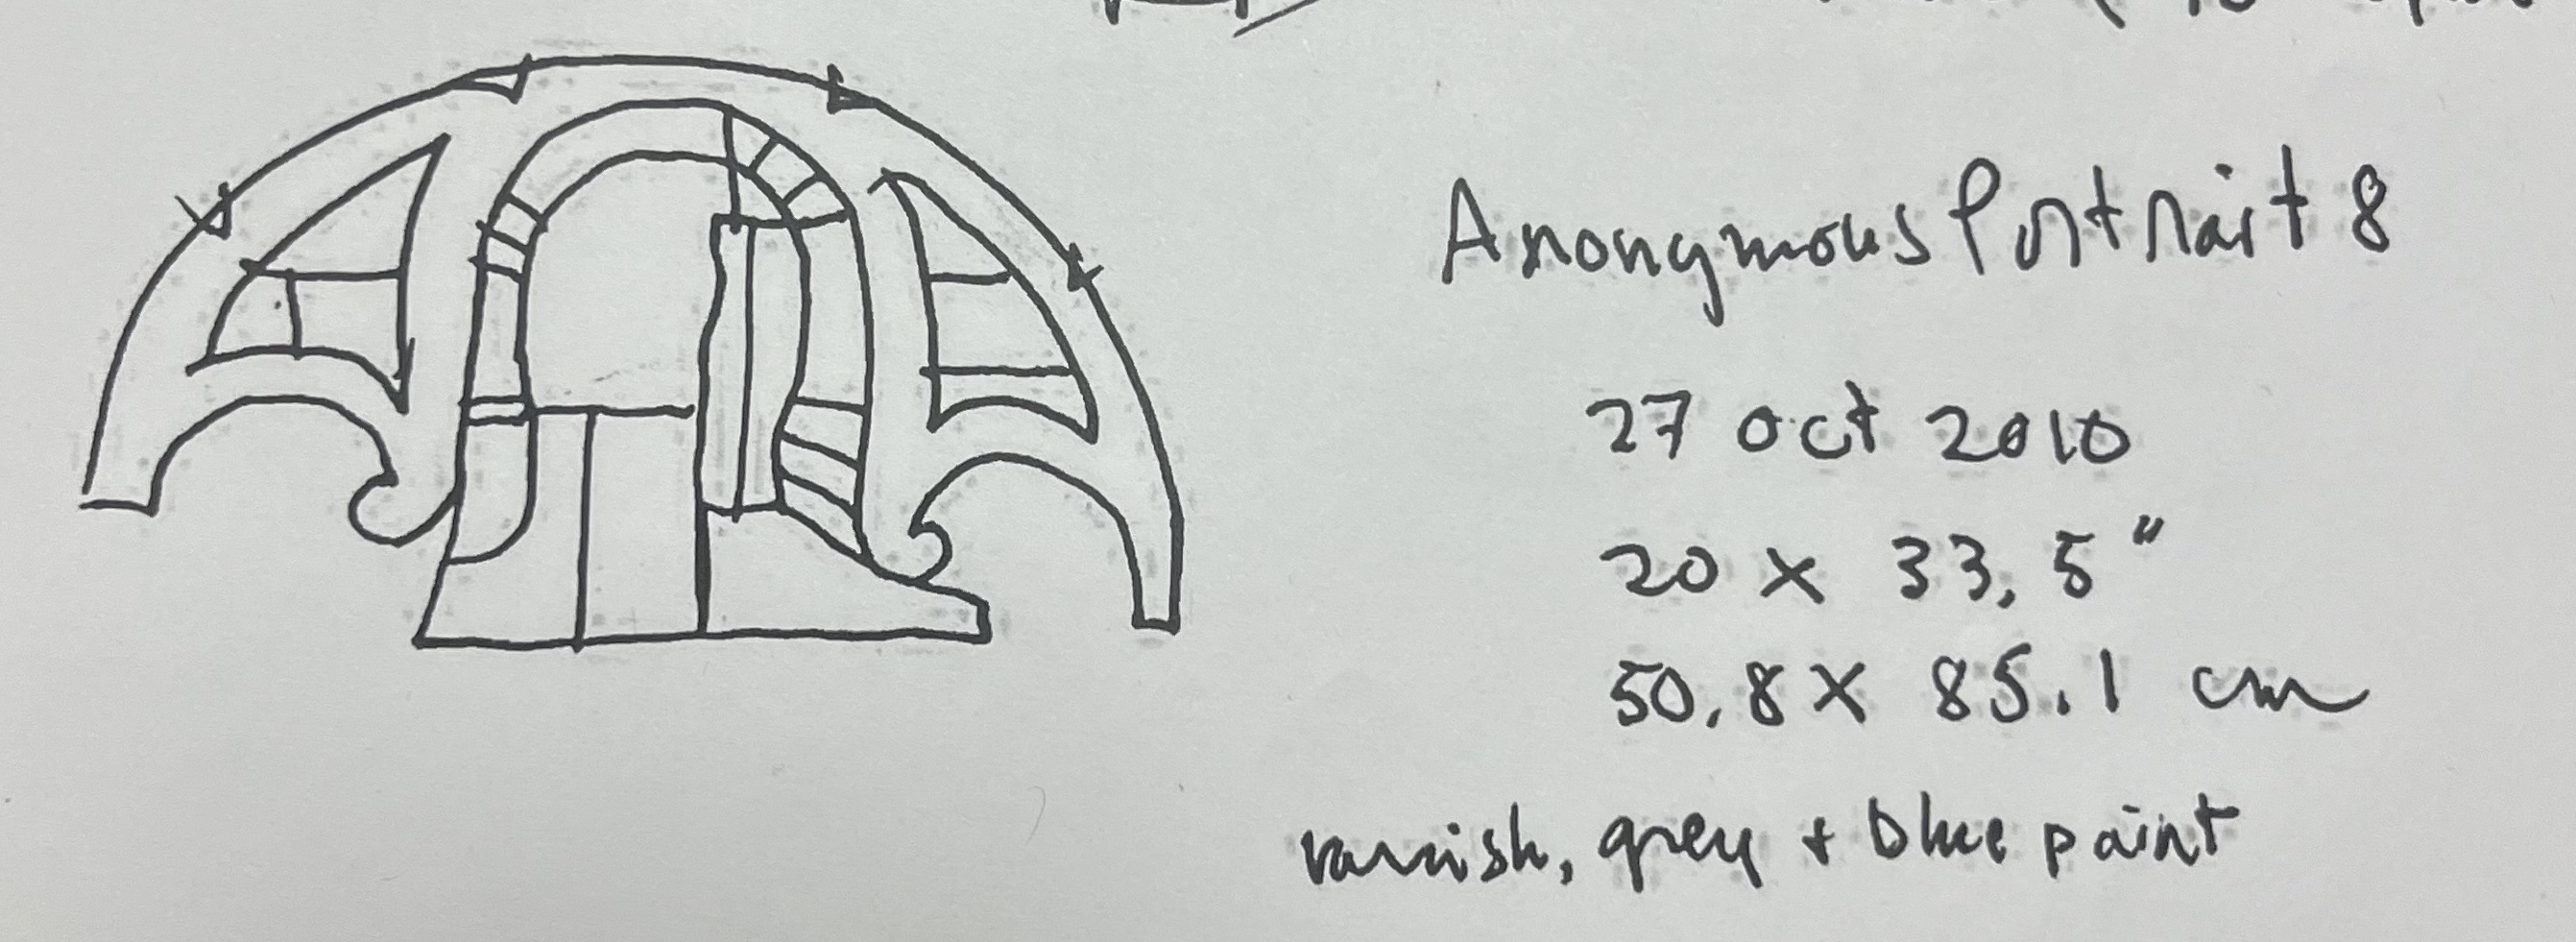 Anonymous Portrait 8
27 oct 2010
20 x 33,5"
50,8 x 85.1 cm
varnish, grey + blue paint